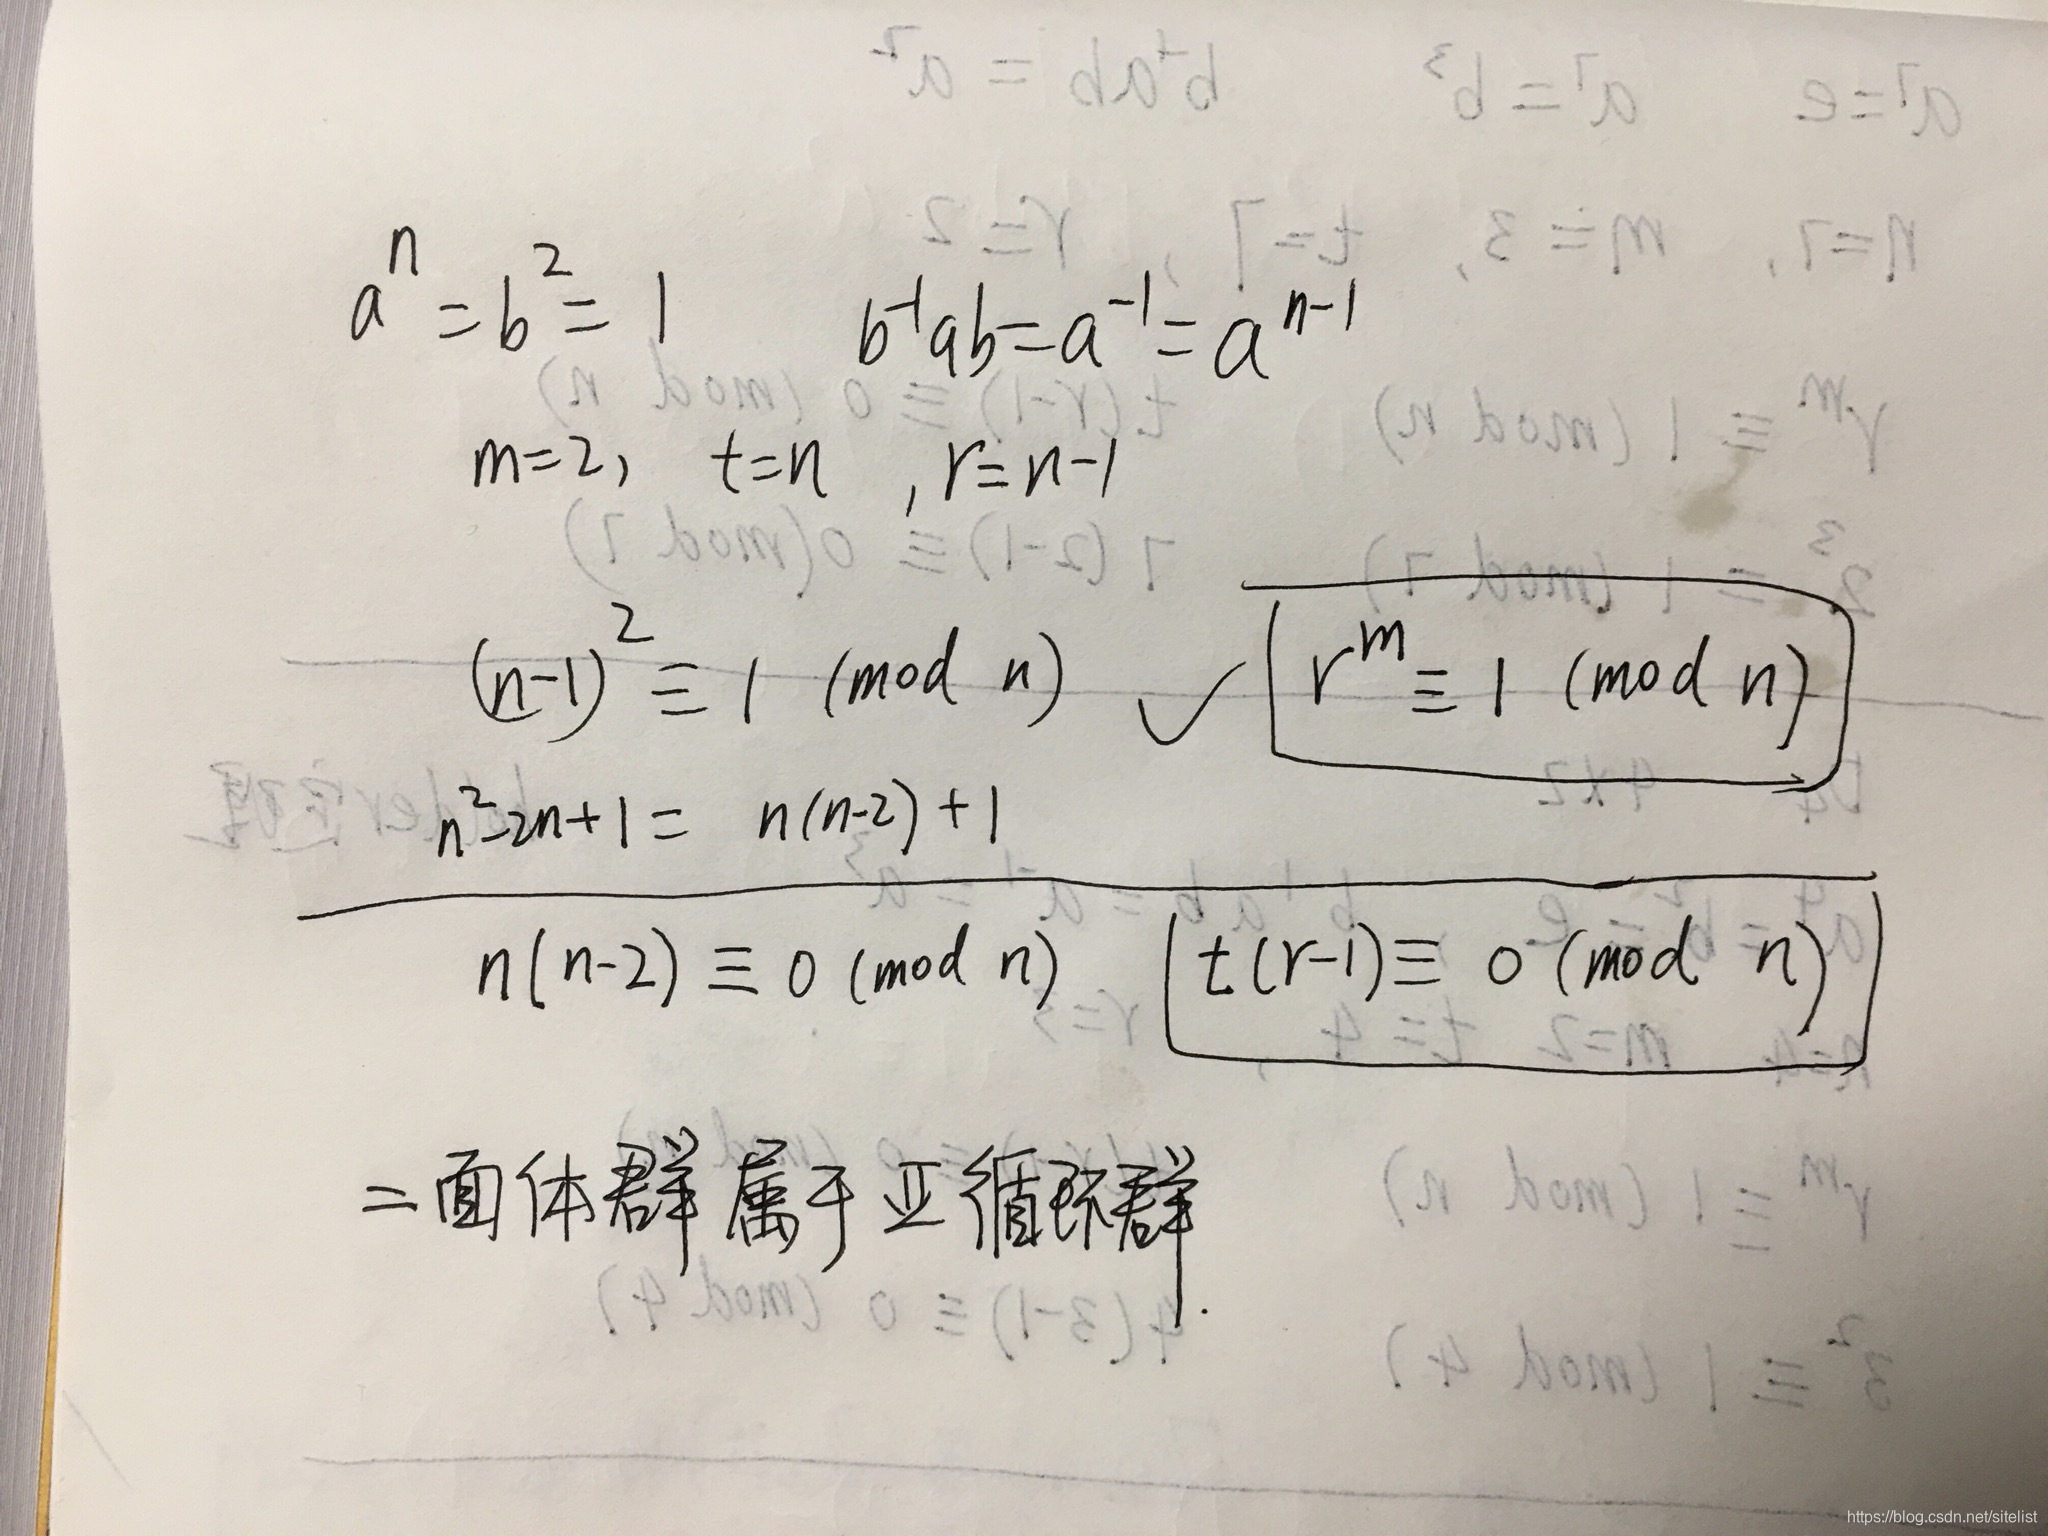 aⁿ = b² = 1 b⁻¹ab = a⁻¹ = aⁿ⁻¹
m=2, t=n , r=n-1
(n-1)² ≡ 1 (mod n) ✓ rᵐ ≡ 1 (mod n)
n²-2n+1 = n(n-2)+1
n(n-2) ≡ 0 (mod n) t(r-1) ≡ 0 (mod n)
二面体群属于亚循环群.
https://blog.csdn.net/sitelist